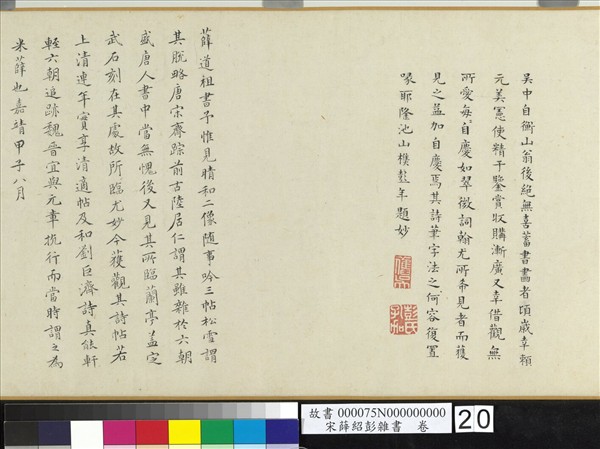 吳中自衡山翁後絕無喜蓄書畫者頃歲幸賴
元美憲使精于鑒賞收購漸廣又幸借觀無
所愛每自慶如翠微詞翰尤所希見者而獲
見之益加自慶焉其詩筆字法之何容復置
喙耶隆池山樵彭年題妙
彭氏
孔加
薛道祖書予惟見晴和二像隨事吟三帖松雪謂
其脫略唐宋齊踪前古陸居仁謂其雖雜於六朝
盛唐人書中當無愧後又見其所臨蘭亭蓋定
武石刻在其處故所臨尤妙今獲觀其詩帖若
上清連年實享清適帖及和劉巨濟詩真能軒
輊六朝追跡魏晉宜與元章抗行而當時謂之為
米薛也嘉靖甲子八月
故書 000075N000000000
宋薛紹彭雜書 卷
20